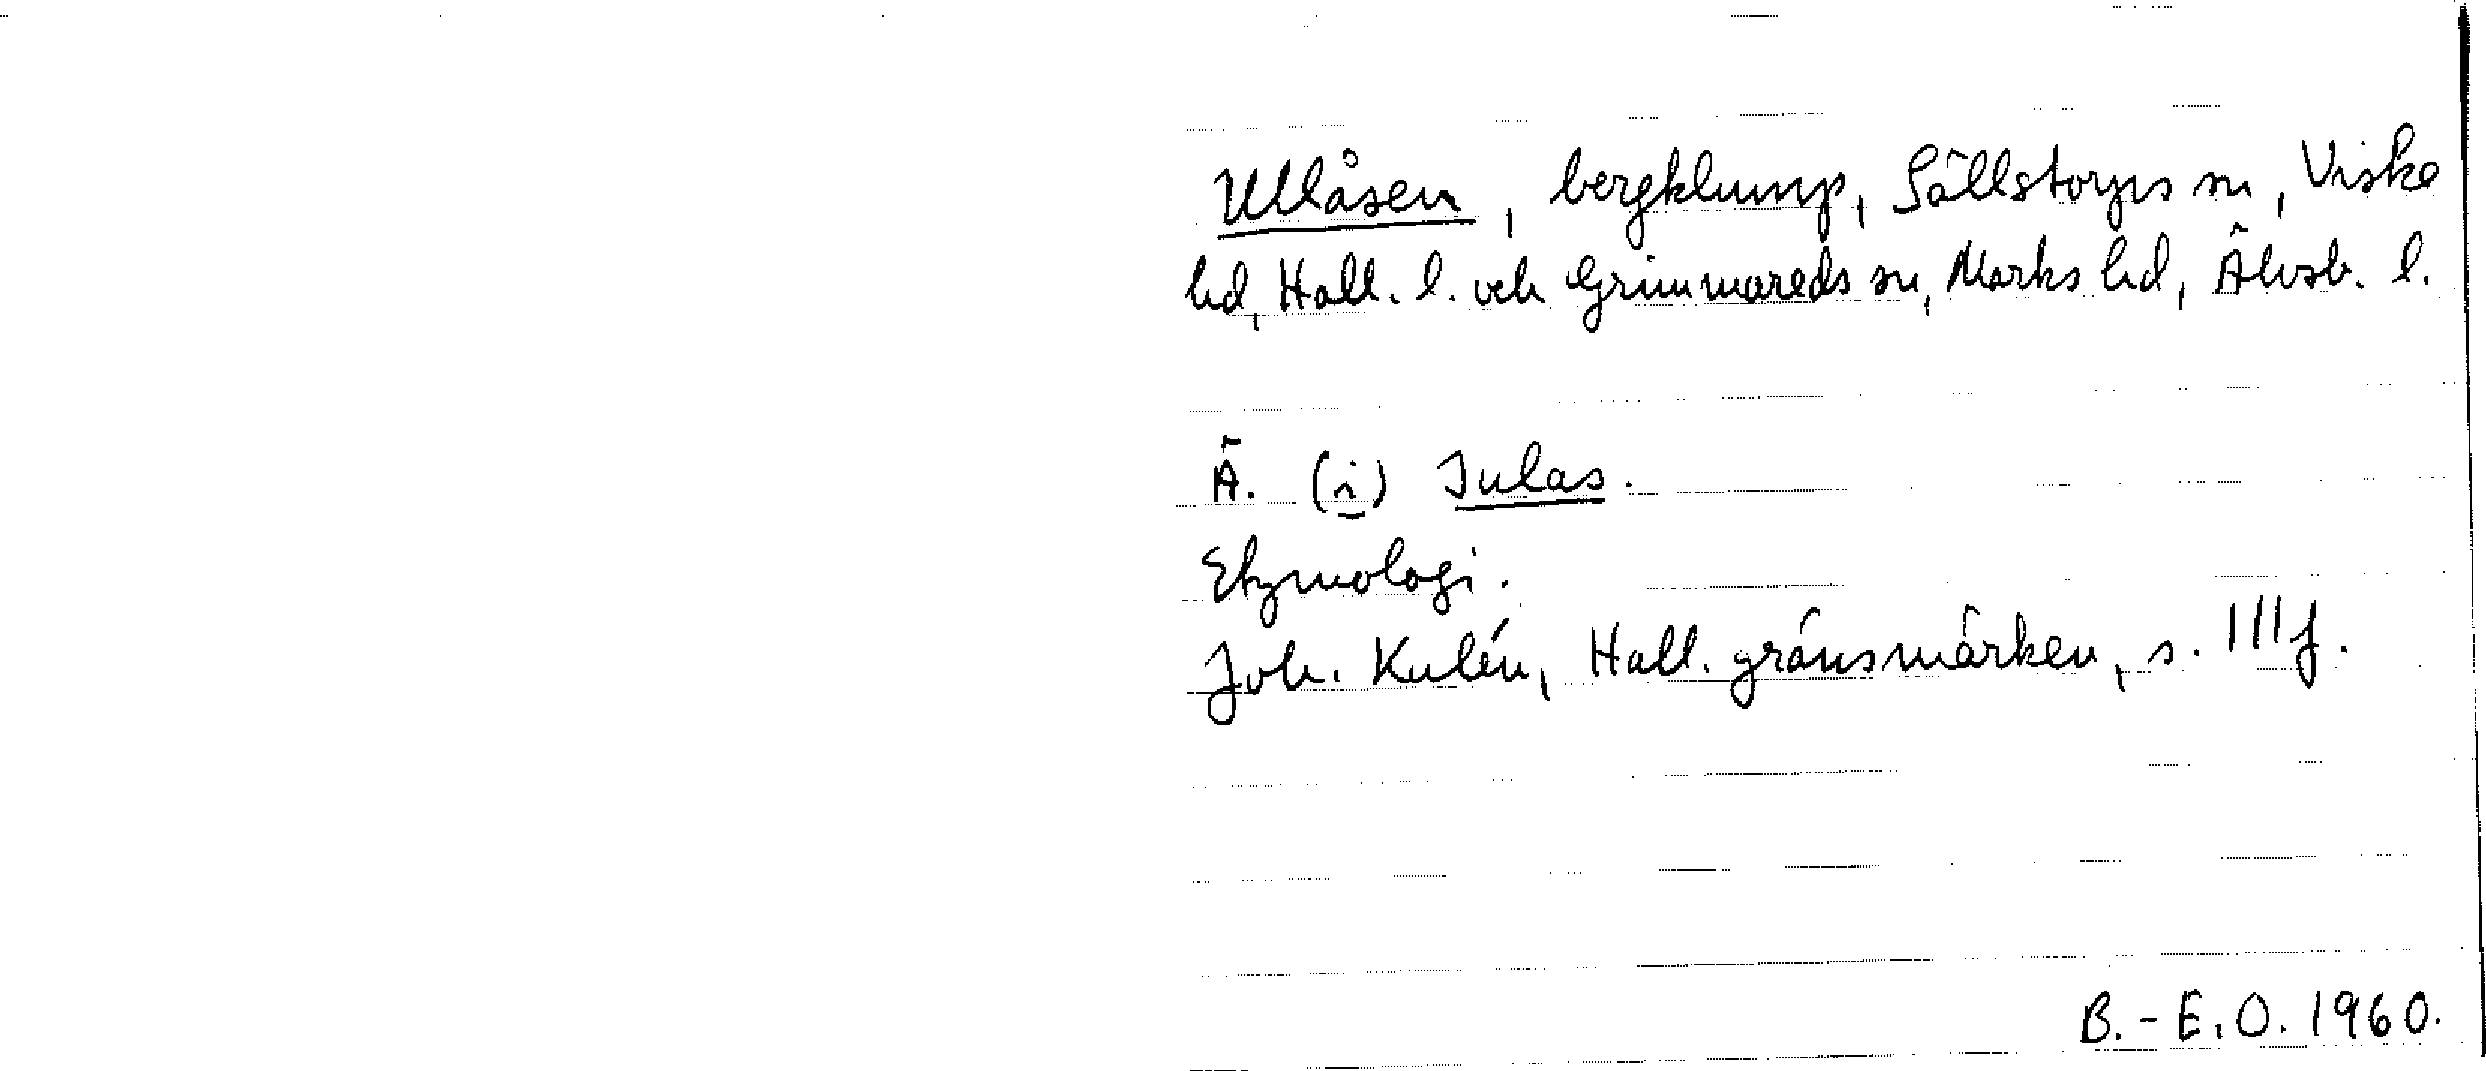 Ullåsen, bergklump, Sällstorps sn, Viske
hd, Hall. l. och Grimmareds sn, Marks hd, Älvsb. l.
Ä. (i) Julas.
Etymologi.
Joh. Kalén, Hall. gränsmärken, s. 111 f.
B.-E.O. 1960.